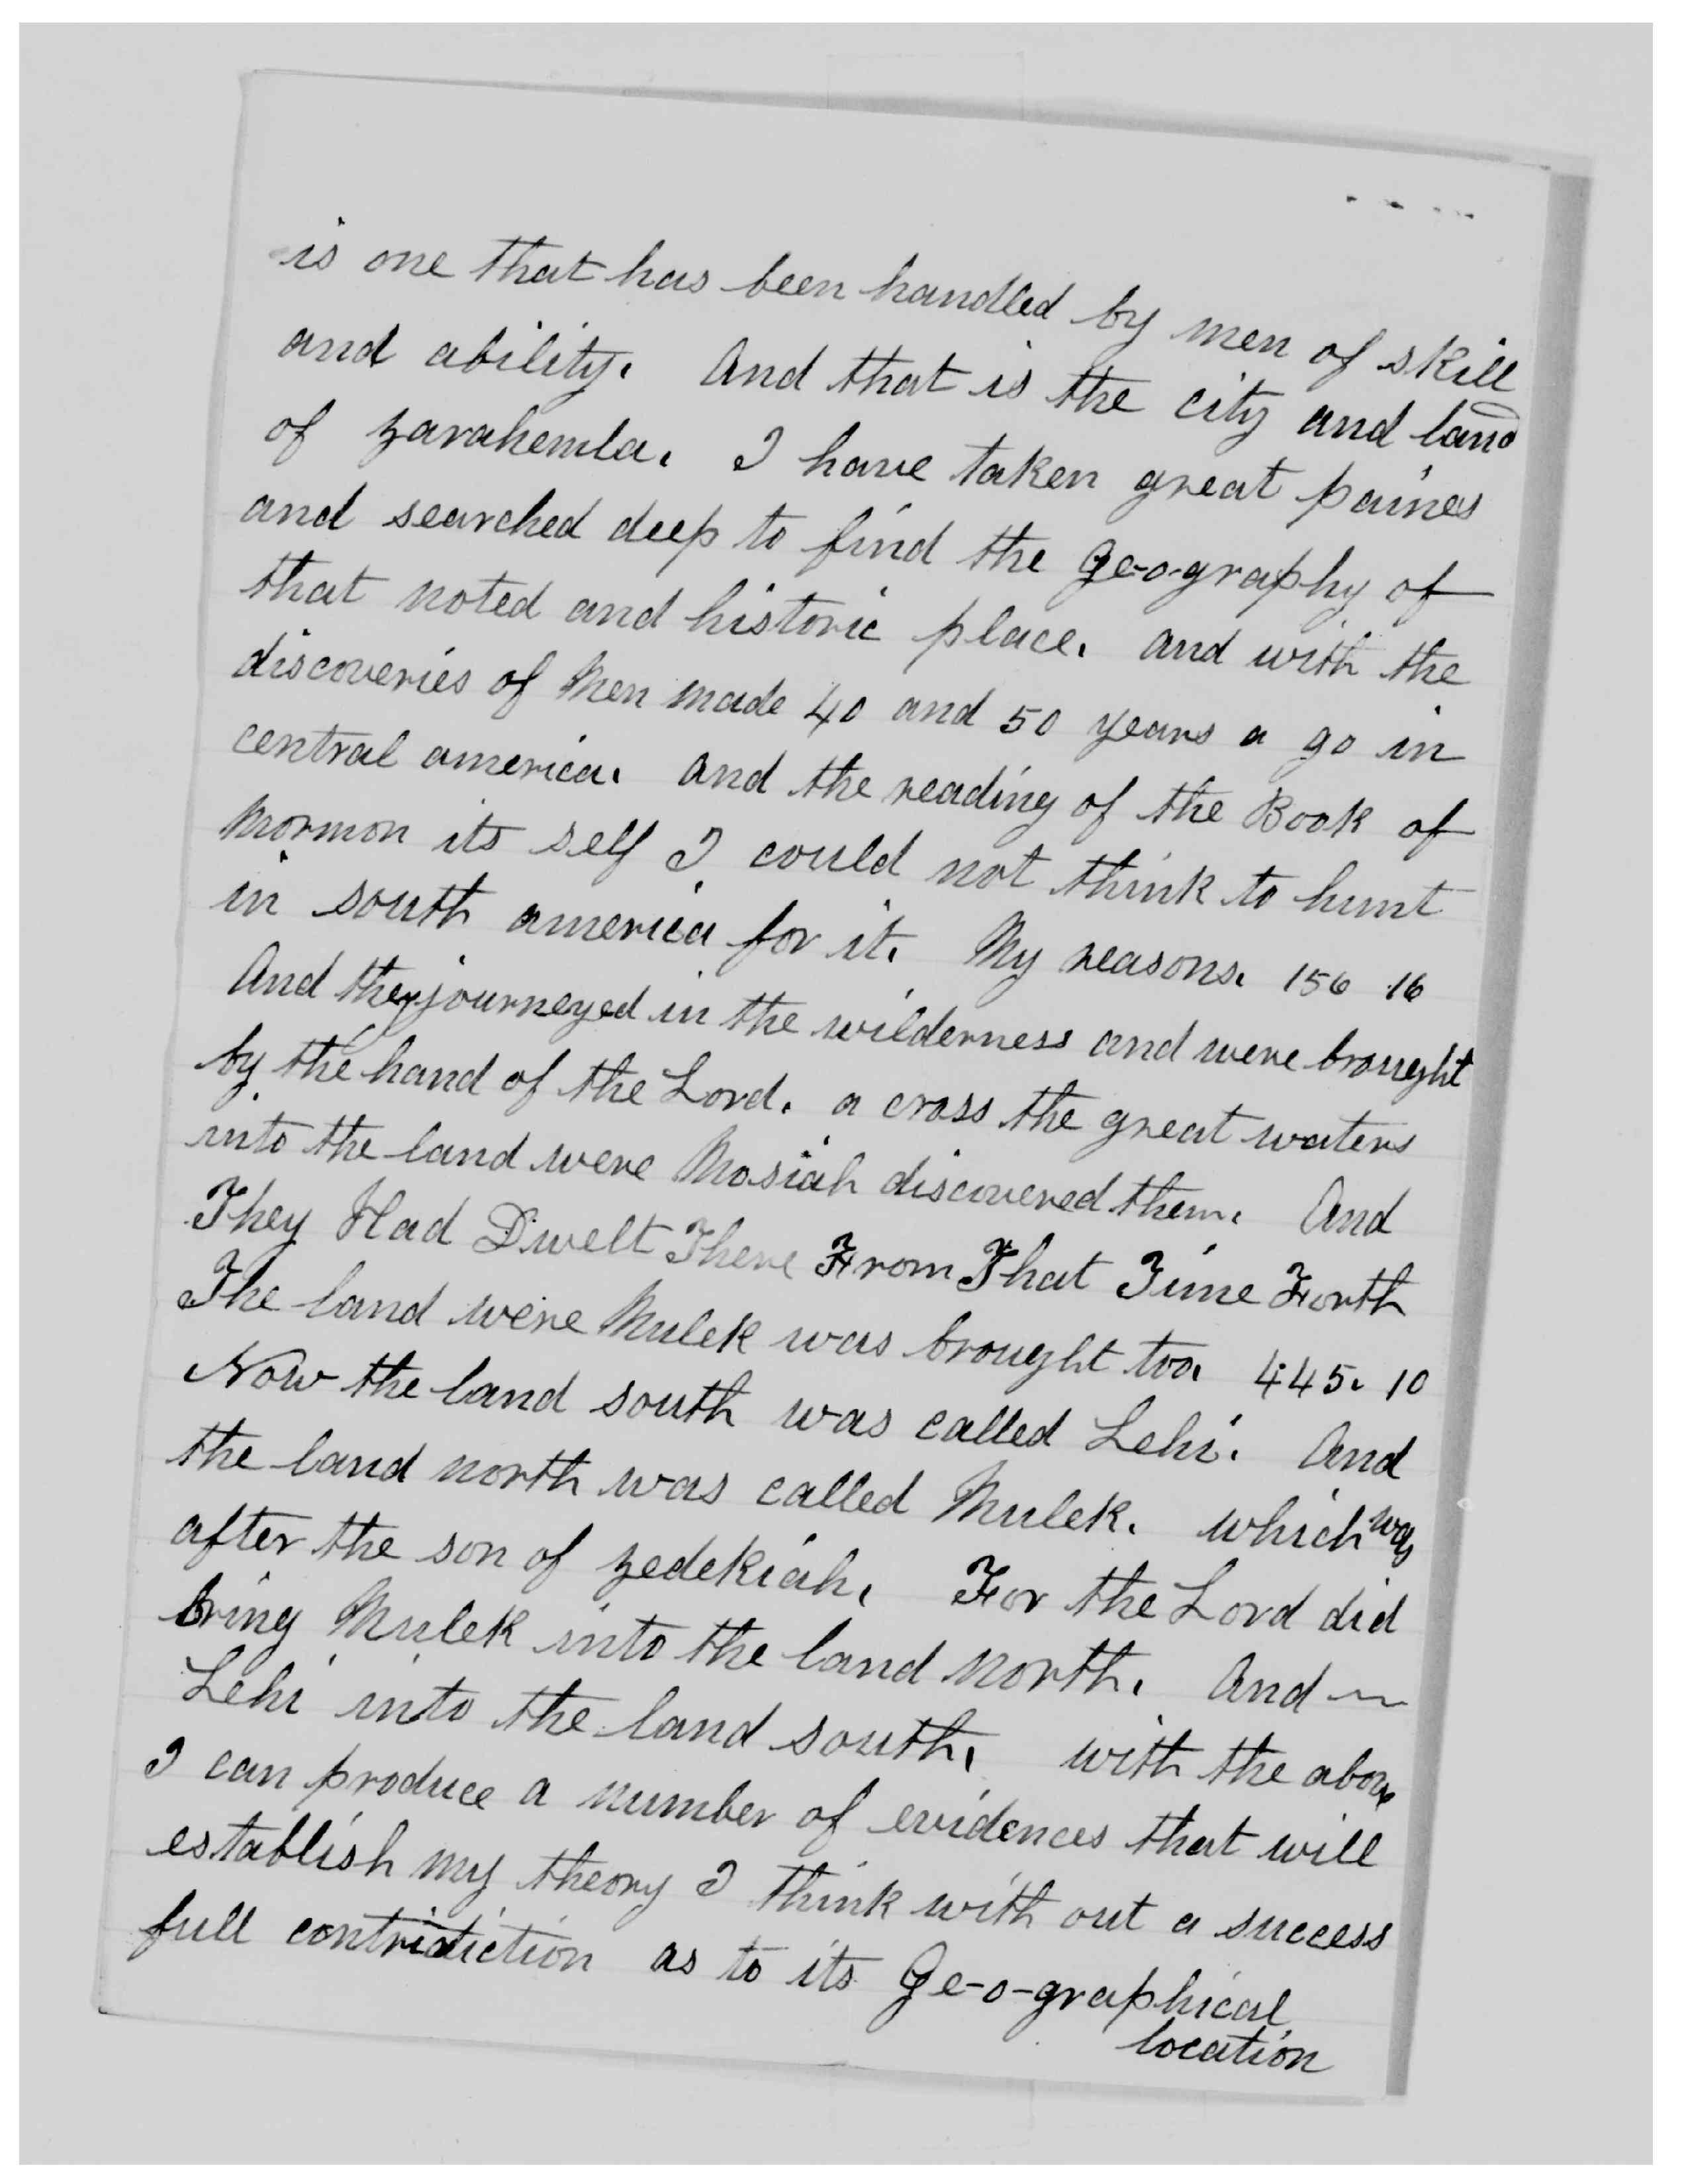 is one that has been handled by men of skill
and ability. And that is the city and land
of zarahemla. I have taken great paines
and searched deep to find the Ge-o-graphy of
that noted and historic place. and with the
discoveries of Men made 40 and 50 years a go in
central america. and the reading of the Book of
Mormon its self I could not think to hunt
in south america for it. My reasons. 156 16
And they journeyed in the wilderness and were brought
by the hand of the Lord. a cross the great waters
into the land were Mosiah discovered them. And
They Had Dwelt There From That Time Forth
The land were Mulek was brought too. 445. 10
Now the land south was called Lehi. And
the land north was called Mulek. which was
after the son of zedekiah. For the Lord did
bring Mulek into the land north. And
Lehi into the land south. with the above
I can produce a number of evidences that will
establish my theory I think with out a success
full contridiction as to its Ge-o-graphical
location